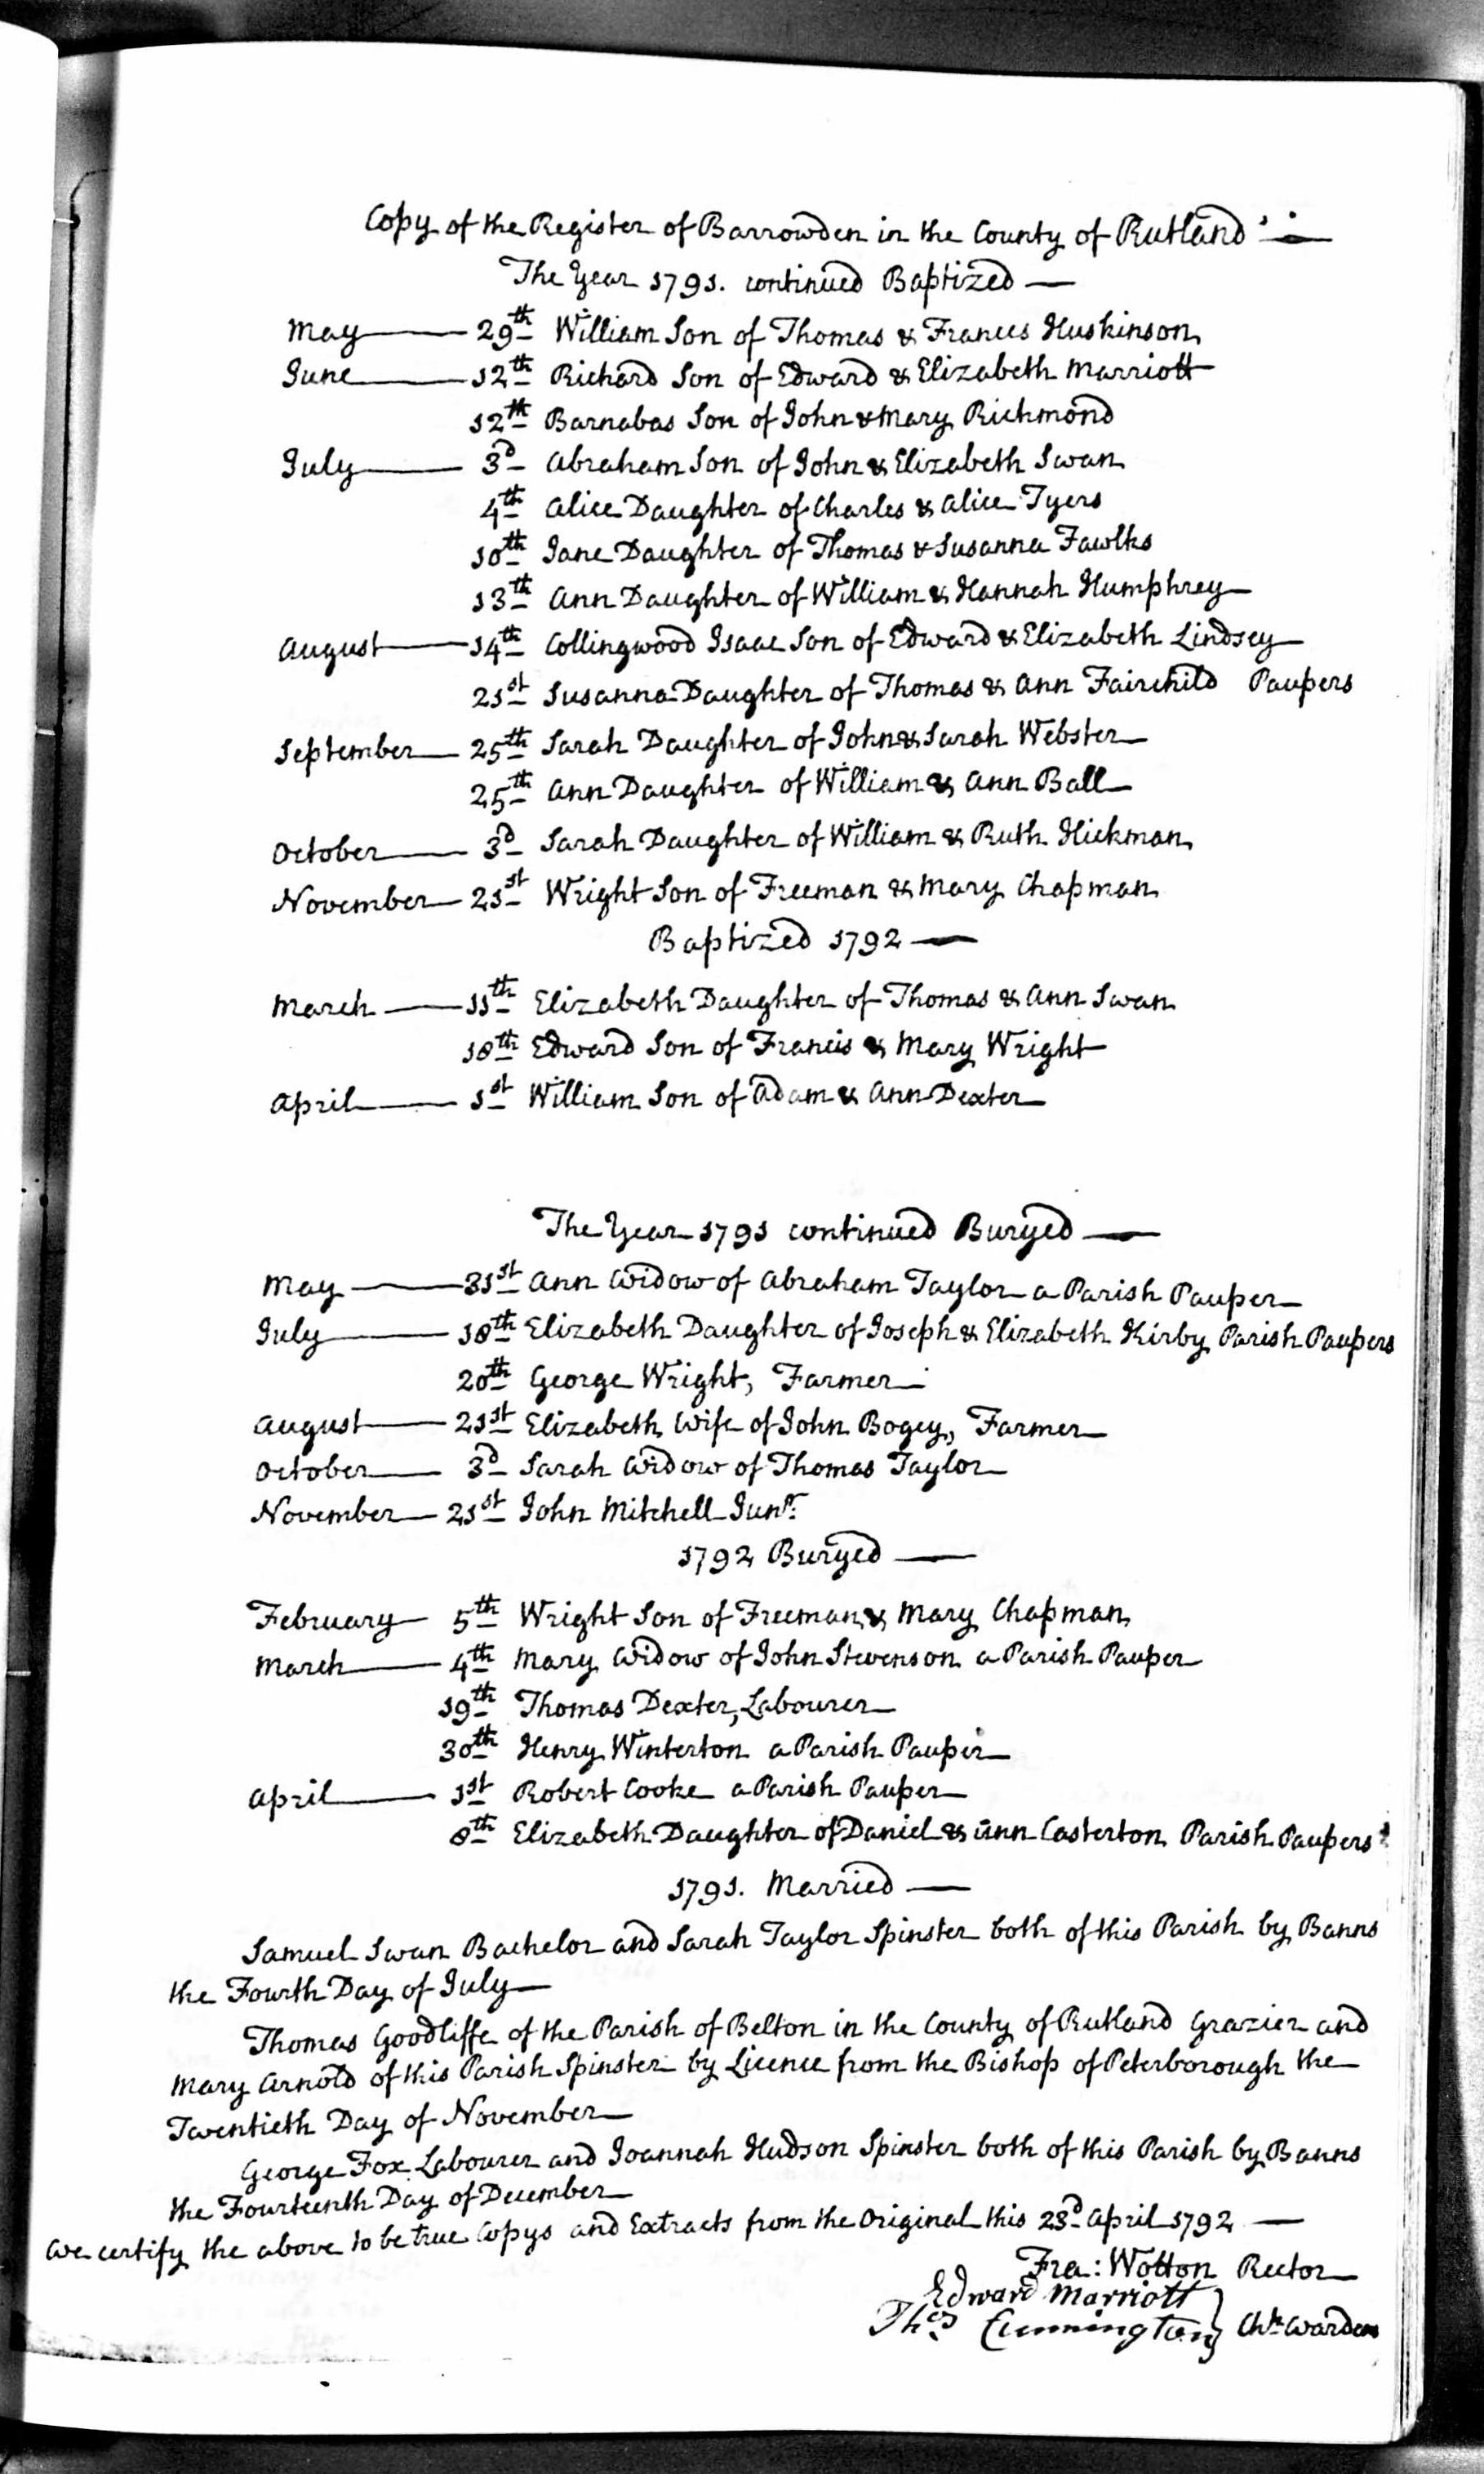 Copy of the Register of Barrowden in the County of Rutland
The Year 1791. continued Baptized —
May — 29th William Son of Thomas & Frances Huskinson
June — 12th Richard Son of Edward & Elizabeth Marriott
12th Barnabas Son of John & Mary Richmond
July — 3d Abraham Son of John & Elizabeth Swan
4th Alice Daughter of Charles & Alice Tyers
10th Jane Daughter of Thomas & Susanna Fawlks
13th Ann Daughter of William & Hannah Humphrey
August — 14th Collingwood Isaac Son of Edward & Elizabeth Lindsey
21st Susanna Daughter of Thomas & Ann Fairchild Paupers
September — 25th Sarah Daughter of John & Sarah Webster
25th Ann Daughter of William & Ann Ball
October — 3d Sarah Daughter of William & Ruth Hickman
November — 21st Wright Son of Freeman & Mary Chapman
Baptized 1792 —
March — 11th Elizabeth Daughter of Thomas & Ann Swan
18th Edward Son of Francis & Mary Wright
April — 1st William Son of Adam & Ann Dexter
The Year 1791 continued Buryed —
May — 31st Ann Widow of Abraham Taylor a Parish Pauper
July — 18th Elizabeth Daughter of Joseph & Elizabeth Kirby Parish Paupers
20th George Wright, Farmer
August — 21st Elizabeth Wife of John Bogey, Farmer
October — 3d Sarah Widow of Thomas Taylor
November — 21st John Mitchell Junr.
1792 Buryed —
February — 5th Wright Son of Freeman & Mary Chapman
March — 4th Mary Widow of John Stevenson a Parish Pauper
19th Thomas Dexter, Labourer
30th Henry Winterton a Parish Pauper
April — 1st Robert Cooke a Parish Pauper
8th Elizabeth Daughter of Daniel & Ann Casterton Parish Paupers
1791. Married —
Samuel Swan Bachelor and Sarah Taylor Spinster both of this Parish by Banns
the Fourth Day of July —
Thomas Goodliffe of the Parish of Belton in the County of Rutland Grazier and
Mary Arnold of this Parish Spinster by Licence from the Bishop of Peterborough the
Twentieth Day of November —
George Fox Labourer and Joannah Hudson Spinster both of this Parish by Banns
the Fourteenth Day of December —
We certify the above to be true Copys and Extracts from the Original this 23d April 1792 —
Fra: Wotton Rector
Edward Marriott
Thos Cunnington } Chh. Wardens